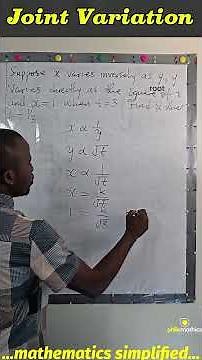 Joint Variation
Suppose x varies inversely as y, y
varies directly as the square root of t
and x = 1 when t = 3. Find x when
x ∝ 1/y
y ∝ √t
x ∝ 1/√t
x = k/√t
1 = k/√t
philermathics
...mathematics simplified...